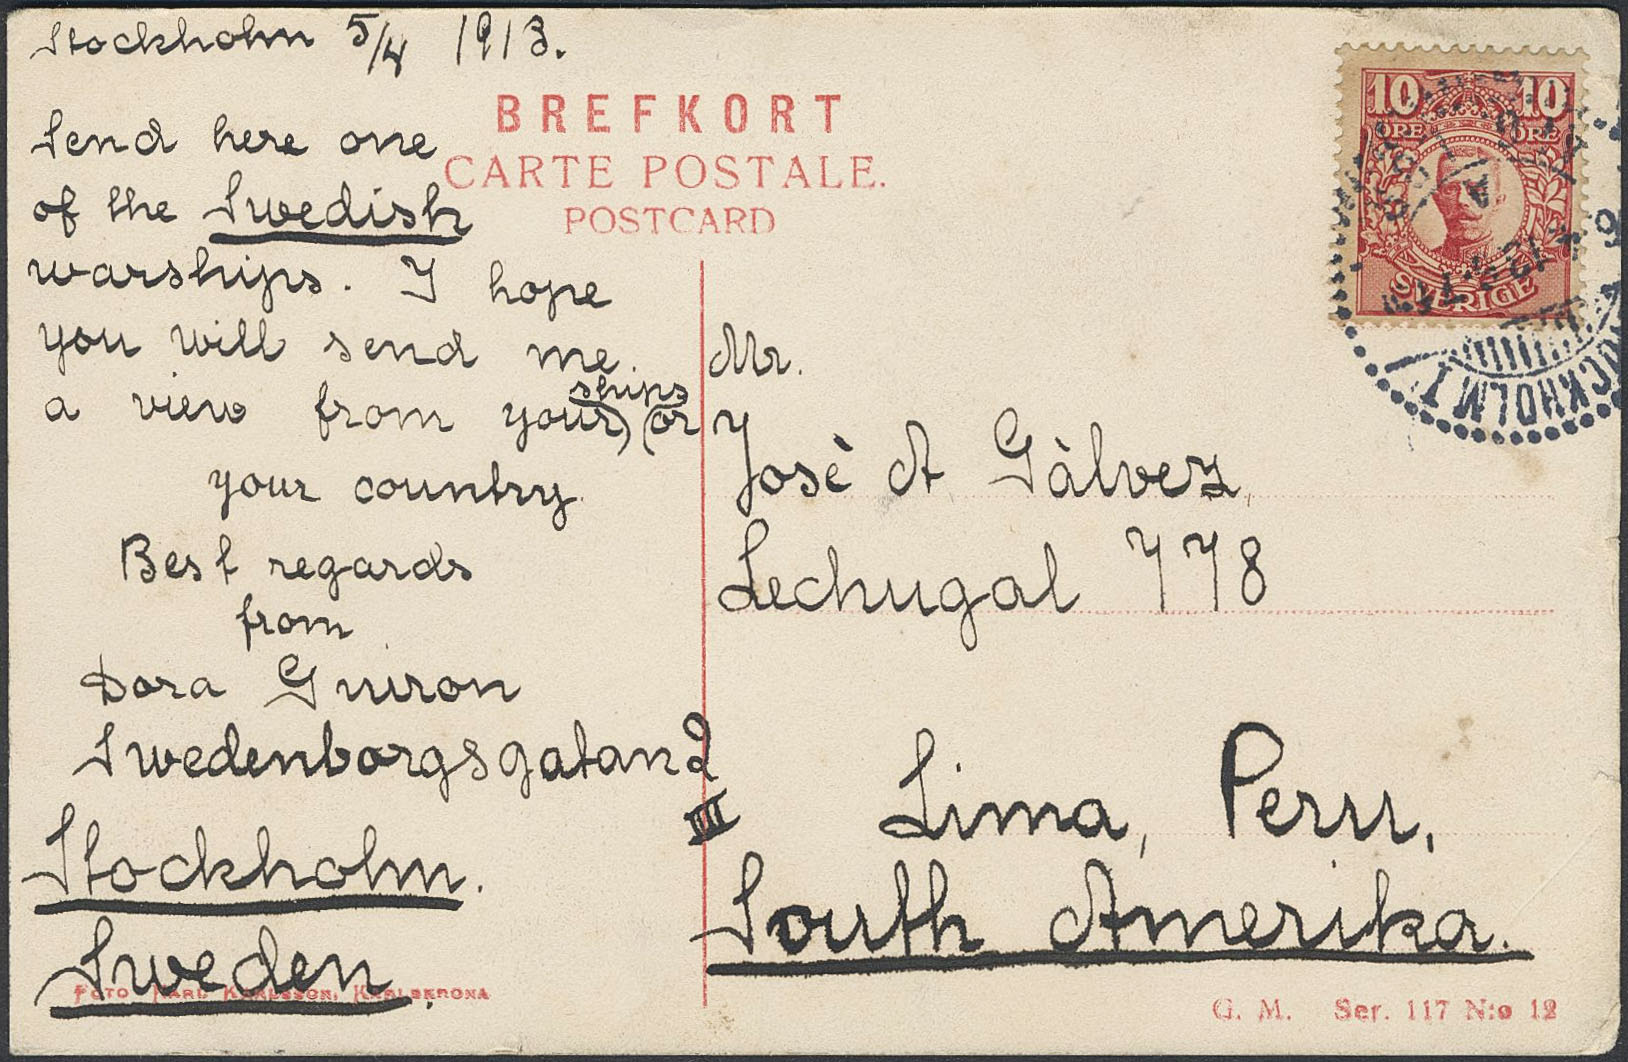 Stockholm 5/4 1913.
BREFKORT
CARTE POSTALE.
POSTCARD
Send here one
of the Swedish
warships. I hope
you will send me
a view from your) (or
ships
your country
Best regards
from
Dora Guiron
Swedenborgsgatan 2
III
Stockholm.
Sweden.
FOTO KARL KARLSSON, KARLSKRONA
10 10
ÖRE ÖRE
SVERIGE
STOCKHOLM 1
Mr.
José A Gàlvez
Lechugal 778
Lima, Peru.
South Amerika.
G. M. Ser. 117 N:o 12